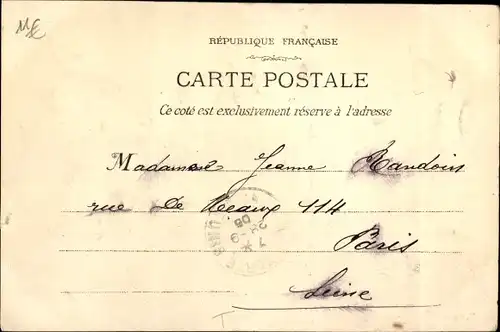 RÉPUBLIQUE FRANÇAISE
CARTE POSTALE
Ce coté est exclusivement réservé à l'adresse
Madame Jeanne Randoin
rue de Meaux 114
Paris
Seine